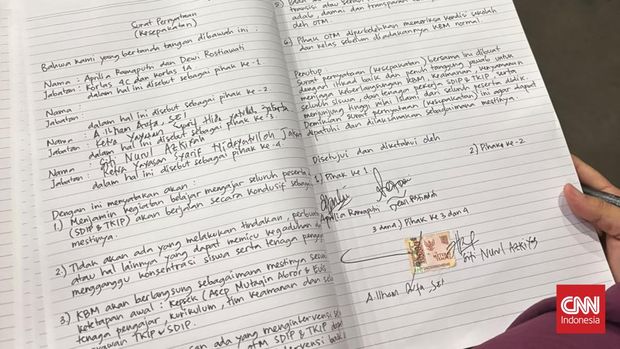 Surat Pernyataan
(Kesepakatan)
Bahwa kami yang bertanda tangan dibawah ini :
Nama : Aprilia Ramaputri dan Dewi Rostiawati
Jabatan : Korlas 4C dan korlas 1A
dalam hal ini disebut sebagai pihak ke-1
Nama :
Jabatan :
dalam hal ini disebut sebagai pihak ke-2
Nama :
Jabatan : Ketua Yayasan Syarif
dalam hal ini disebut sebagai pihak ke-3
Nama : Siti Nurul Azkiyah
Jabatan : Ketua Yayasan Syarif Hidayatullah
dalam hal ini disebut sebagai pihak ke-4
Dengan ini menyatakan akan :
1.) Menjamin kegiatan belajar mengajar seluruh peserta
(SDIP & TKIP) akan berjalan secara kondusif sebagai
mestinya.
2) Tidak akan ada yang melakukan tindakan,
atau hal lainnya yang dapat memicu kegaduhan
mengganggu konsentrasi siswa serta tenaga
3.) KBM akan berlangsung sebagaimana mestinya
ketetapan awal : Kepsek
tenaga pengajar, kurikulum, tim keamanan dan
TKIP & SDIP.
akan ada yang mengintervensi
SDIP & TKIP
adab, damai dan transparan
oleh OTM
6) Pihak OTM diperbolehkan memeriksa kondisi sekolah
dan kelas sebelum diadakannya KBM normal.
Penutup
Surat pernyataan (kesepakatan) bersama ini dibuat
dengan itikad baik dan penuh tanggung jawab untuk
menjaga keberlangsungan KBM, keamanan, kenyamanan
seluruh siswa, dan tenaga pekerja SDIP & TKIP serta
menjunjung tinggi nilai islami dan seluruh peserta didik.
Demikian surat pernyataan (kesepakatan) ini agar dapat
dipatuhi dan dilaksanakan sebagaimana mestinya.
Disetujui dan diketahui oleh
1) Pihak ke 1
2) Pihak ke-2
Aprilia Ramaputri
Dewi Rostiawati
3 dan 4) Pihak ke 3 dan 4
Siti Nurul Azkiyah
CNN
Indonesia